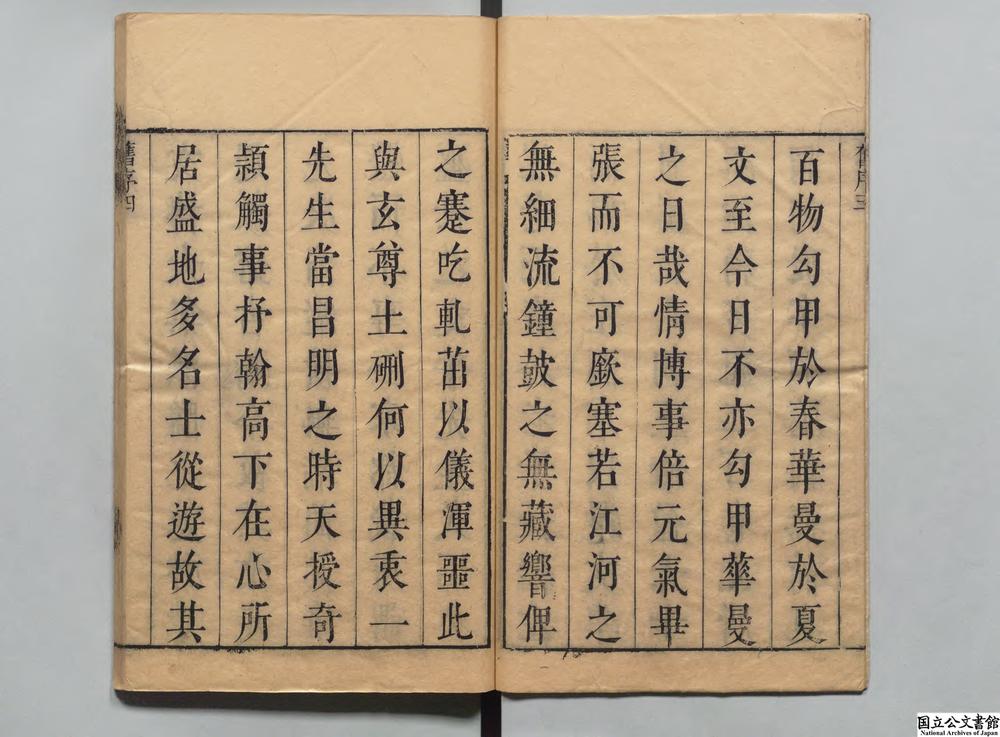 百物勾甲於春華曼於夏
文至今日不亦勾甲華曼
之日哉情博事倍元氣畢
張而不可厥塞若江河之
無細流鐘鼓之無藏響俾
之蹇吃軋茁以儀渾噩此
與玄尊土硎何以異袁一
先生當昌明之時天授奇
頴觸事抒翰高下在心所
居盛地多名士從遊故其
舊序四
国立公文書館
National Archives of Japan